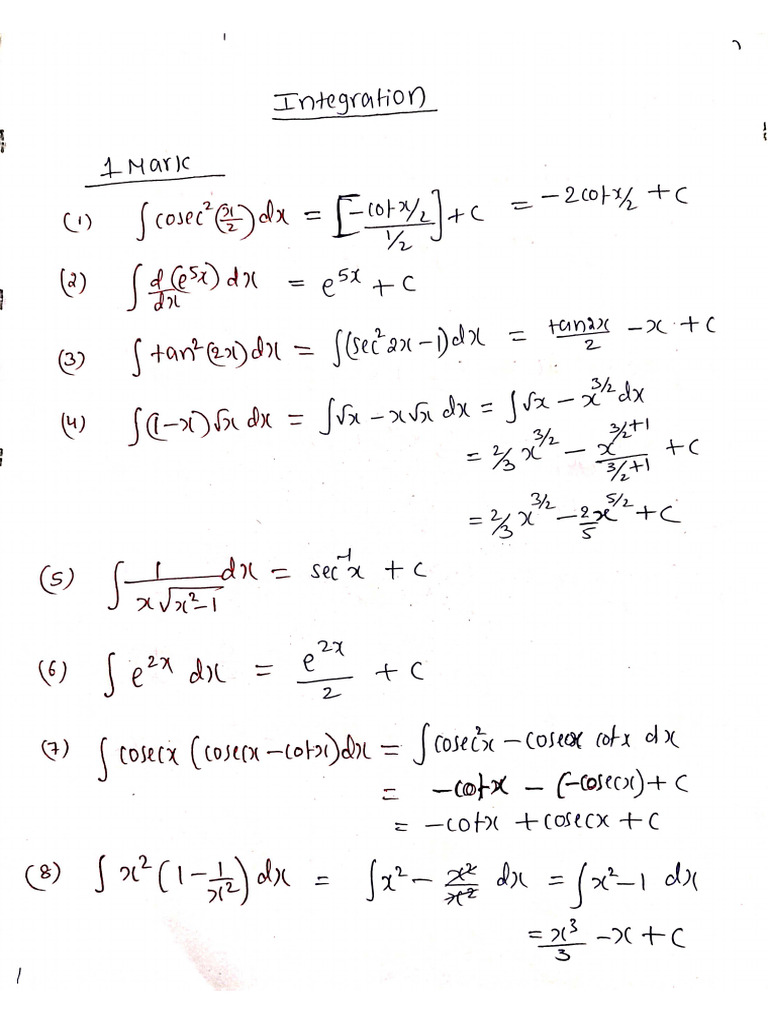 Integration
1 Mark
(1) ∫ cosec²(x/2) dx = [-cot x/2 / 1/2] + c = -2cot x/2 + c
(2) ∫ d/dx (e^5x) dx = e^5x + c
(3) ∫ tan²(2x) dx = ∫(sec² 2x - 1) dx = tan2x/2 - x + c
(4) ∫(1-x)√x dx = ∫√x - x√x dx = ∫√x - x^3/2 dx
= 2/3 x^3/2 - x^(3/2+1) / (3/2+1) + c
= 2/3 x^3/2 - 2/5 x^5/2 + c
(5) ∫ 1/(x√(x²-1)) dx = sec⁻¹x + c
(6) ∫ e^2x dx = e^2x/2 + c
(7) ∫ cosecx (cosecx - cotx) dx = ∫cosec²x - cosecx cotx dx
= -cotx - (-cosecx) + c
= -cotx + cosecx + c
(8) ∫ x² (1 - 1/x²) dx = ∫x² - x²/x² dx = ∫x² - 1 dx
= x³/3 - x + c